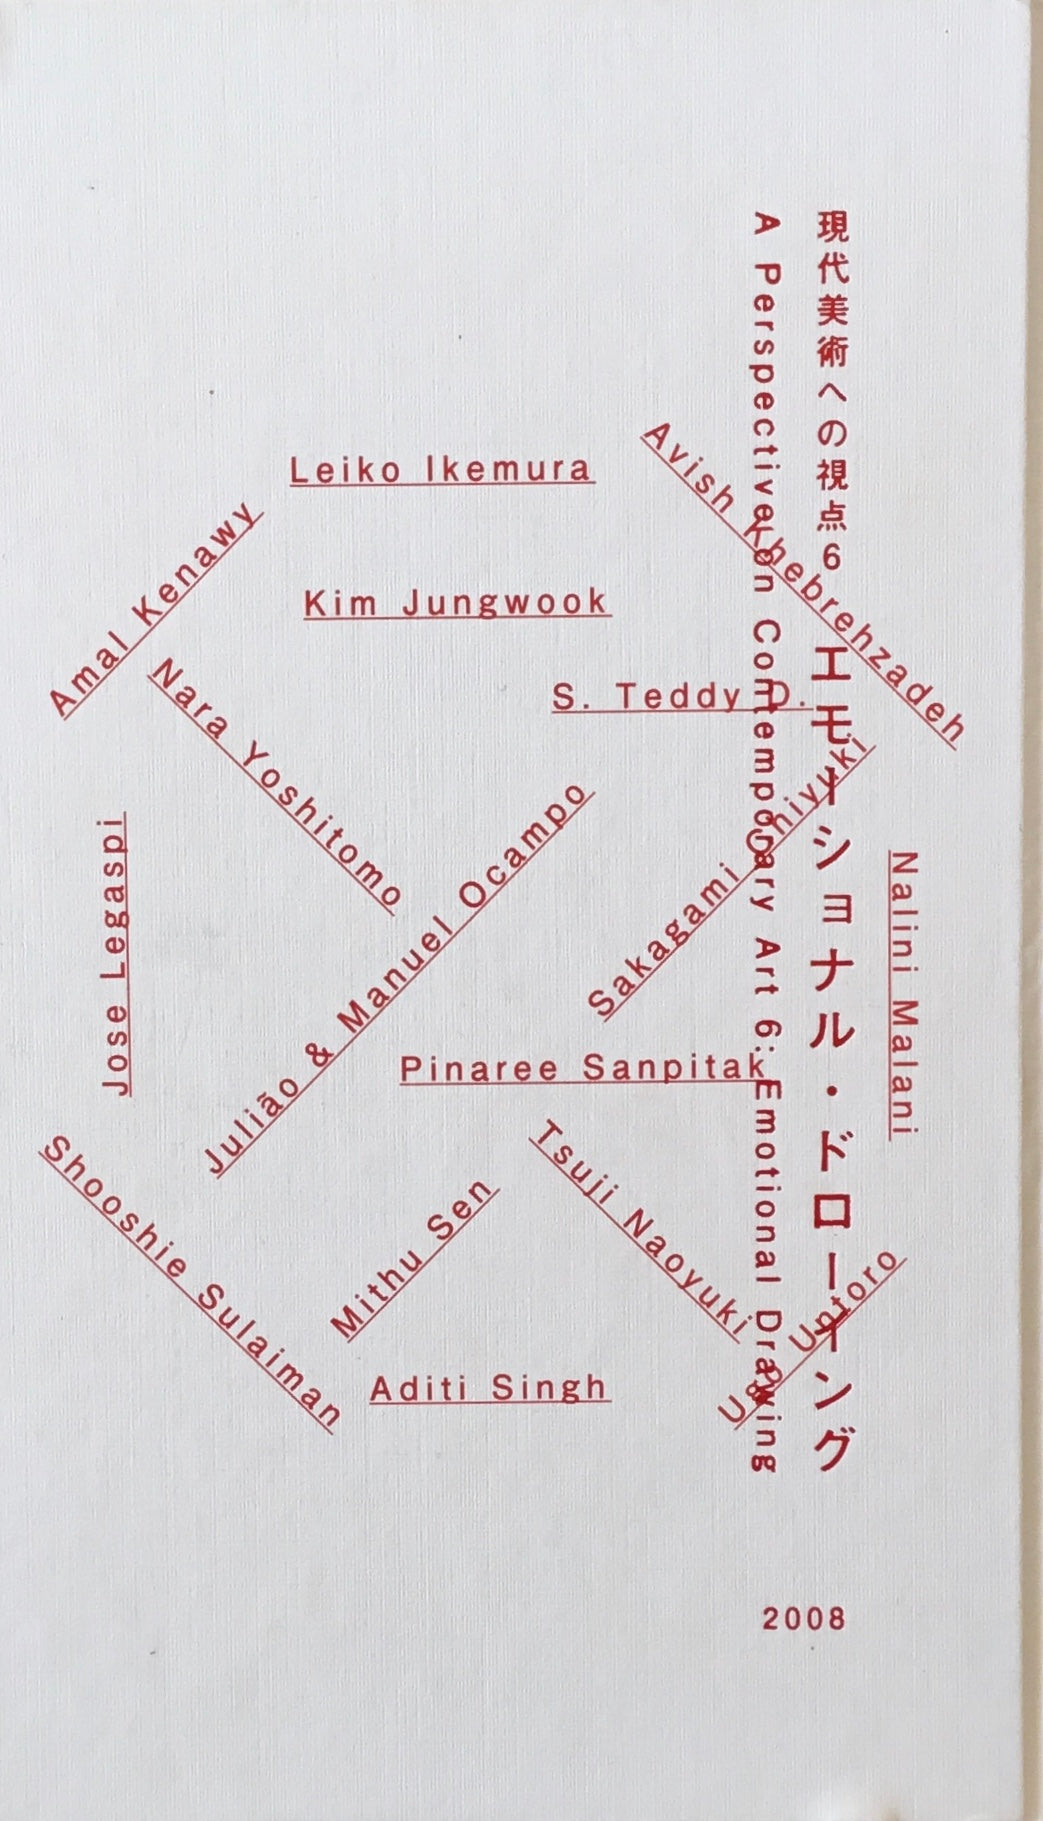 現代美術への視点6 エモーショナル・ドローイング
A Perspective on Contemporary Art 6: Emotional Drawing
Avish Khebrehzadeh
Leiko Ikemura
Amal Kenawy
Kim Jungwook
Nara Yoshitomo
S. Teddy D.
Sakagami Chiyuki
Julião & Manuel Ocampo
Jose Legaspi
Nalini Malani
Pinaree Sanpitak
Tsuji Naoyuki
Shooshie Sulaiman
Mithu Sen
Ugo Untoro
Aditi Singh
2008